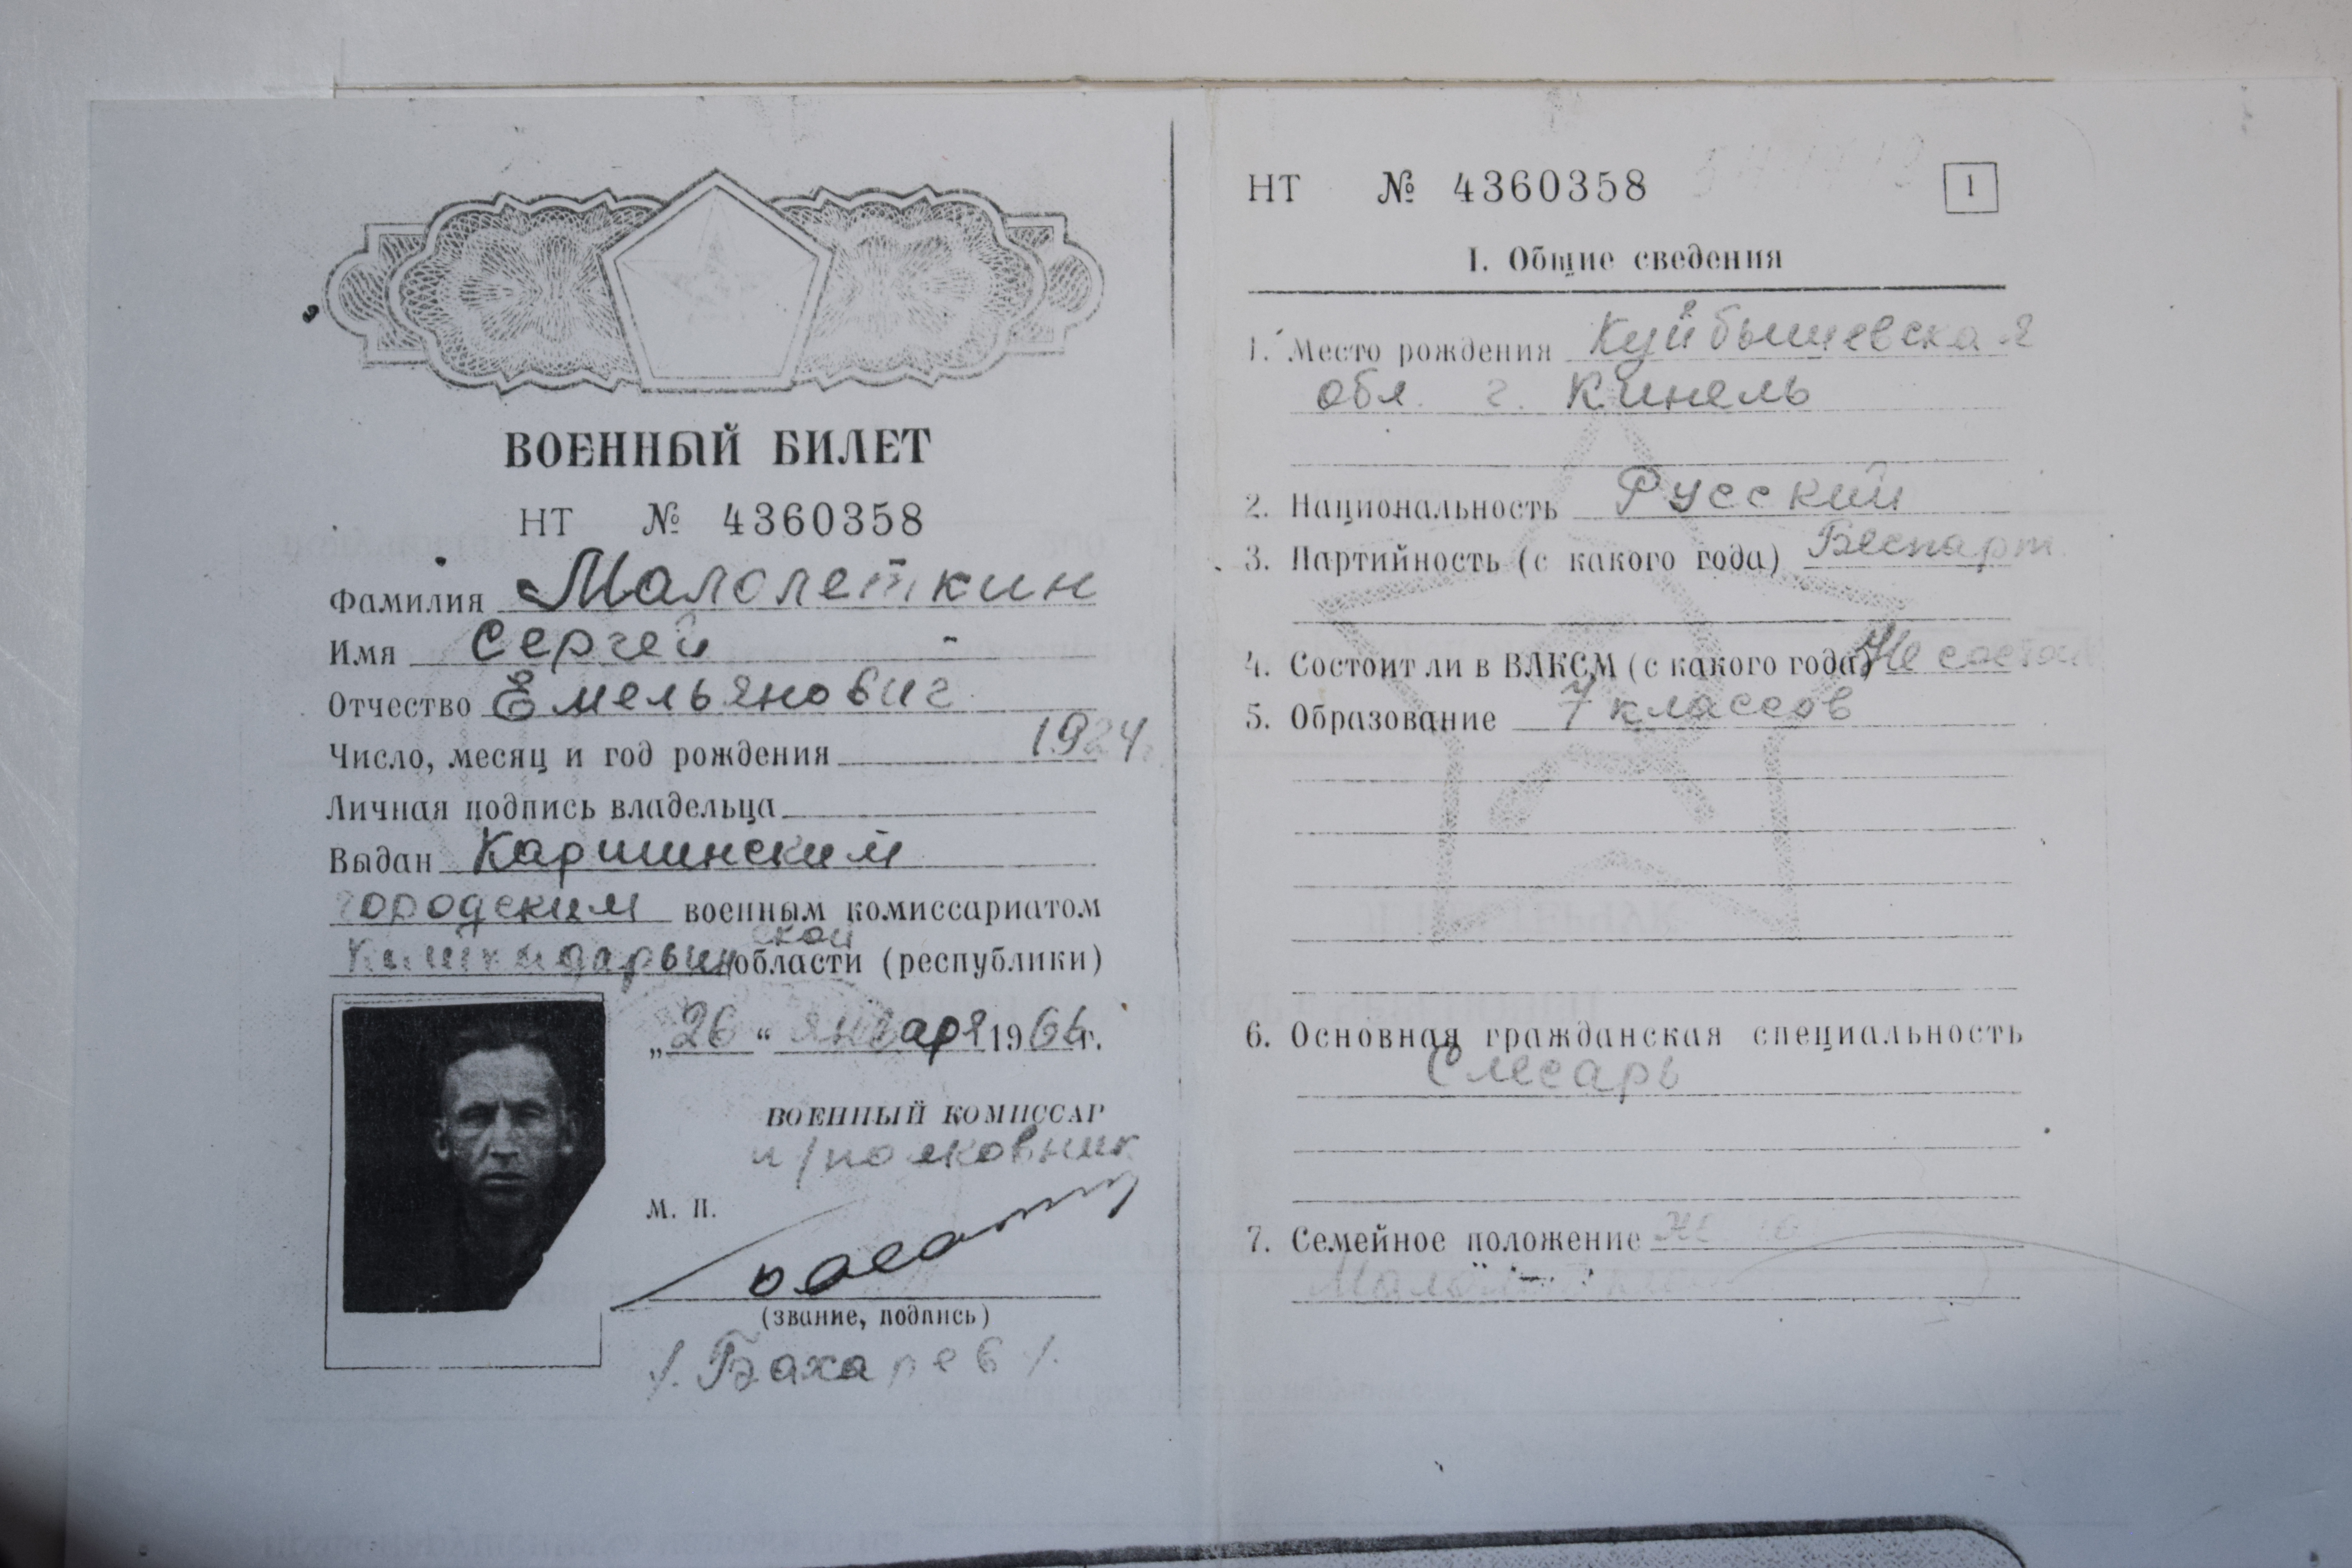 ВОЕННЫЙ БИЛЕТ
НТ № 4360358
Фамилия Малолеткин
Имя Сергей
Отчество Емельянович
Число, месяц и год рождения 1924г.
Личная подпись владельца
Выдан Каршинским
городским военным комиссариатом
Кашкадарьинской области (республики)
„26“ января 1966г.
ВОЕННЫЙ КОМИССАР
п/полковник
М. П.
(звание, подпись)
/. Бахарев /.
НТ № 4360358
1
I. Общие сведения
1. Место рождения Куйбышевская
обл. г. Кинель
2. Национальность Русский
3. Партийность (с какого года) Беспарт.
4. Состоит ли в ВЛКСМ (с какого года) Не состоит
5. Образование 7 классов
6. Основная гражданская специальность
Слесарь
7. Семейное положение